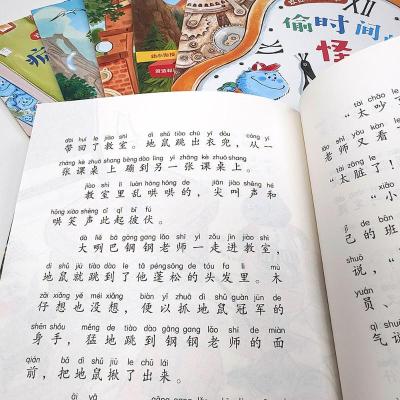 XII
偷时间
怪
幼小衔接
dài huí le jiào shì dì shǔ tiào chū yī dōu cóng yì
带回了教室。地鼠跳出衣兜，从一
zhāng kè zhuō shang bèng dào lìng yì zhāng kè zhuō shang
张课桌上蹦到另一张课桌上。
jiào shì li luàn hōng hōng de jiān jiào shēng hé
教室里乱哄哄的，尖叫声和
hōng xiào shēng cǐ qǐ bǐ fú
哄笑声此起彼伏。
dà liě bā gāng gang lǎo shī yì zǒu jìn jiào shì
大咧巴钢钢老师一走进教室，
dì shǔ jiù tiào dào le tā péng sōng de tóu fa li mù
地鼠就跳到了他蓬松的头发里。木
zǎi xiǎng yě méi xiǎng biàn yǐ zhuā dì shǔ guàn jūn de
仔想也没想，便以抓地鼠冠军的
shēn shǒu měng de tiào dào gāng gang lǎo shī de miàn
身手，猛地跳到钢钢老师的面
qián bǎ dì shǔ jiū le chū lái
前，把地鼠揪了出来。
āi yā
tài chǎo le
“太吵
lǎo shī yòu kàn le
老师又看了
tài zāng le
太脏了！
“小
jǐ de bān
己的班
shuō
说，“
yuán
员、
qì shuō
气说